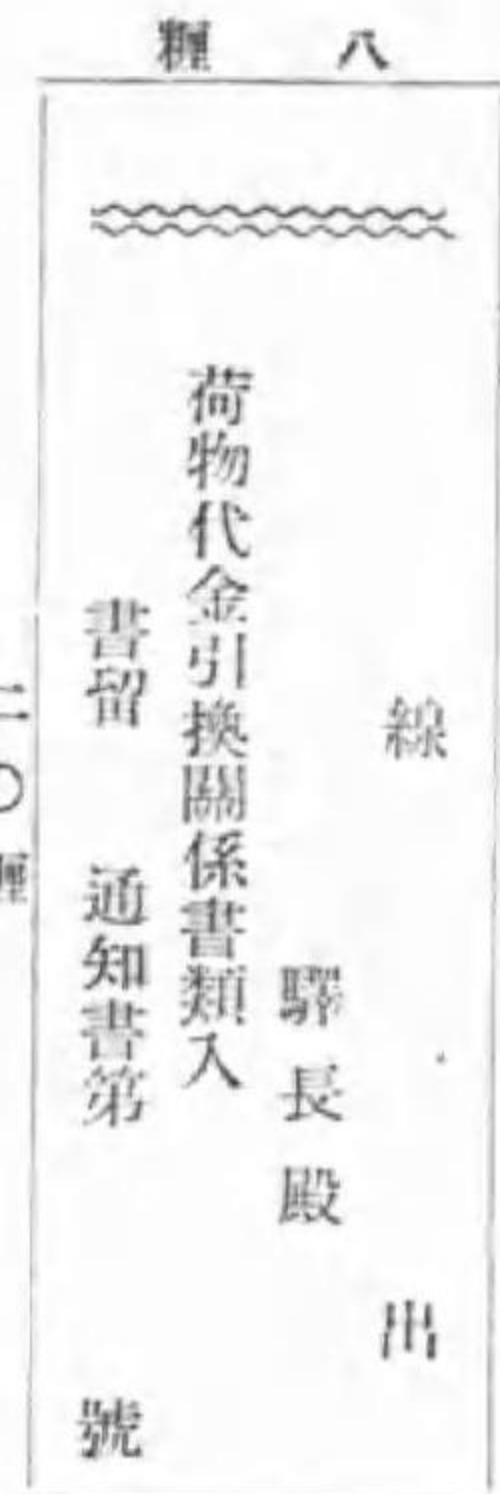 八糎
線 出
驛長殿
荷物代金引換關係書類入
書留 通知書第 號
二〇糎